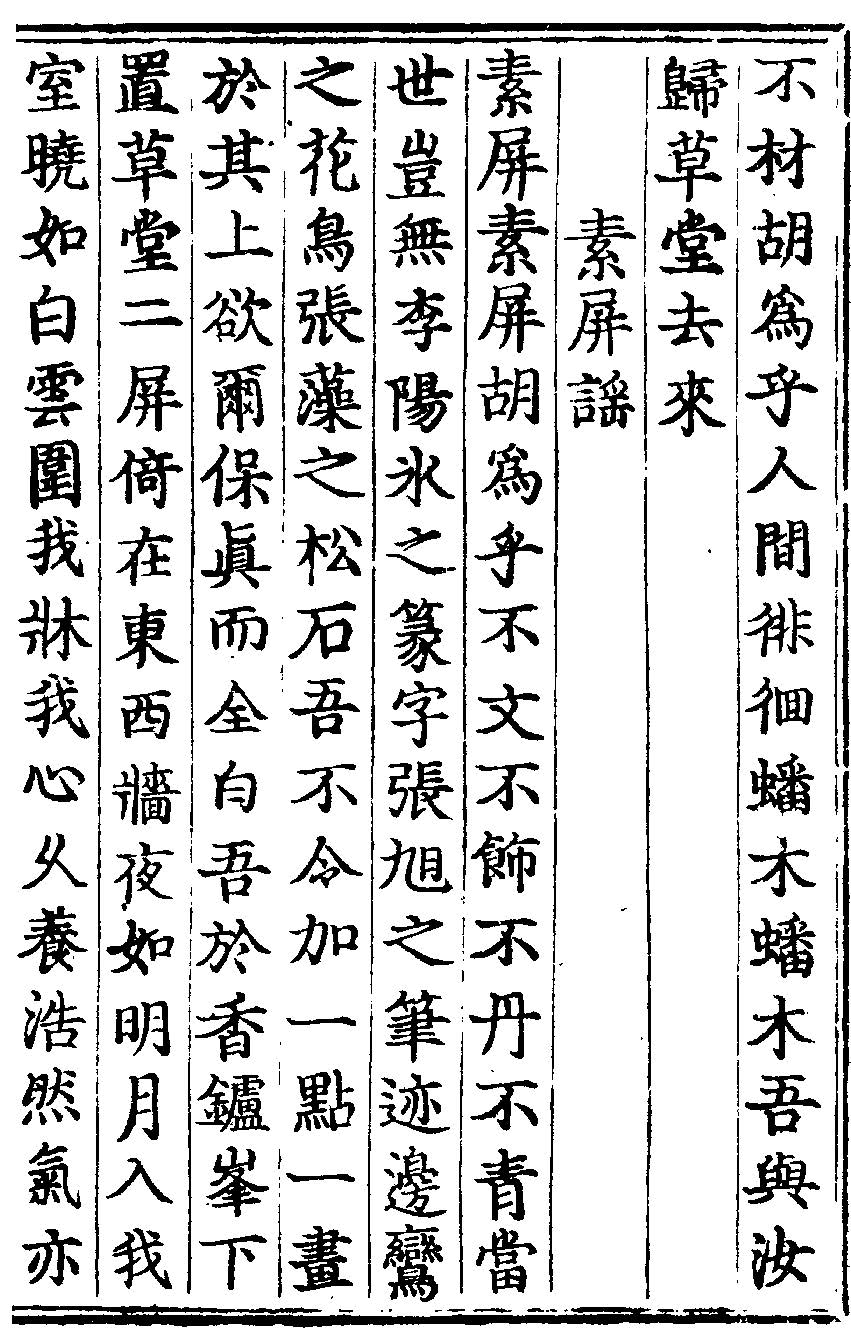 不材胡爲乎人間徘徊蟠木蟠木吾與汝
歸草堂去來
素屏謡
素屏素屏胡爲乎不文不飾不丹不青當
世豈無李陽氷之篆字張旭之筆迹邊鸞
之花鳥張藻之松石吾不令加一點一畫
於其上欲爾保眞而全白吾於香鑪峯下
置草堂二屏倚在東西牆夜如明月入我
室曉如白雲圍我牀我心乆養浩然氣亦